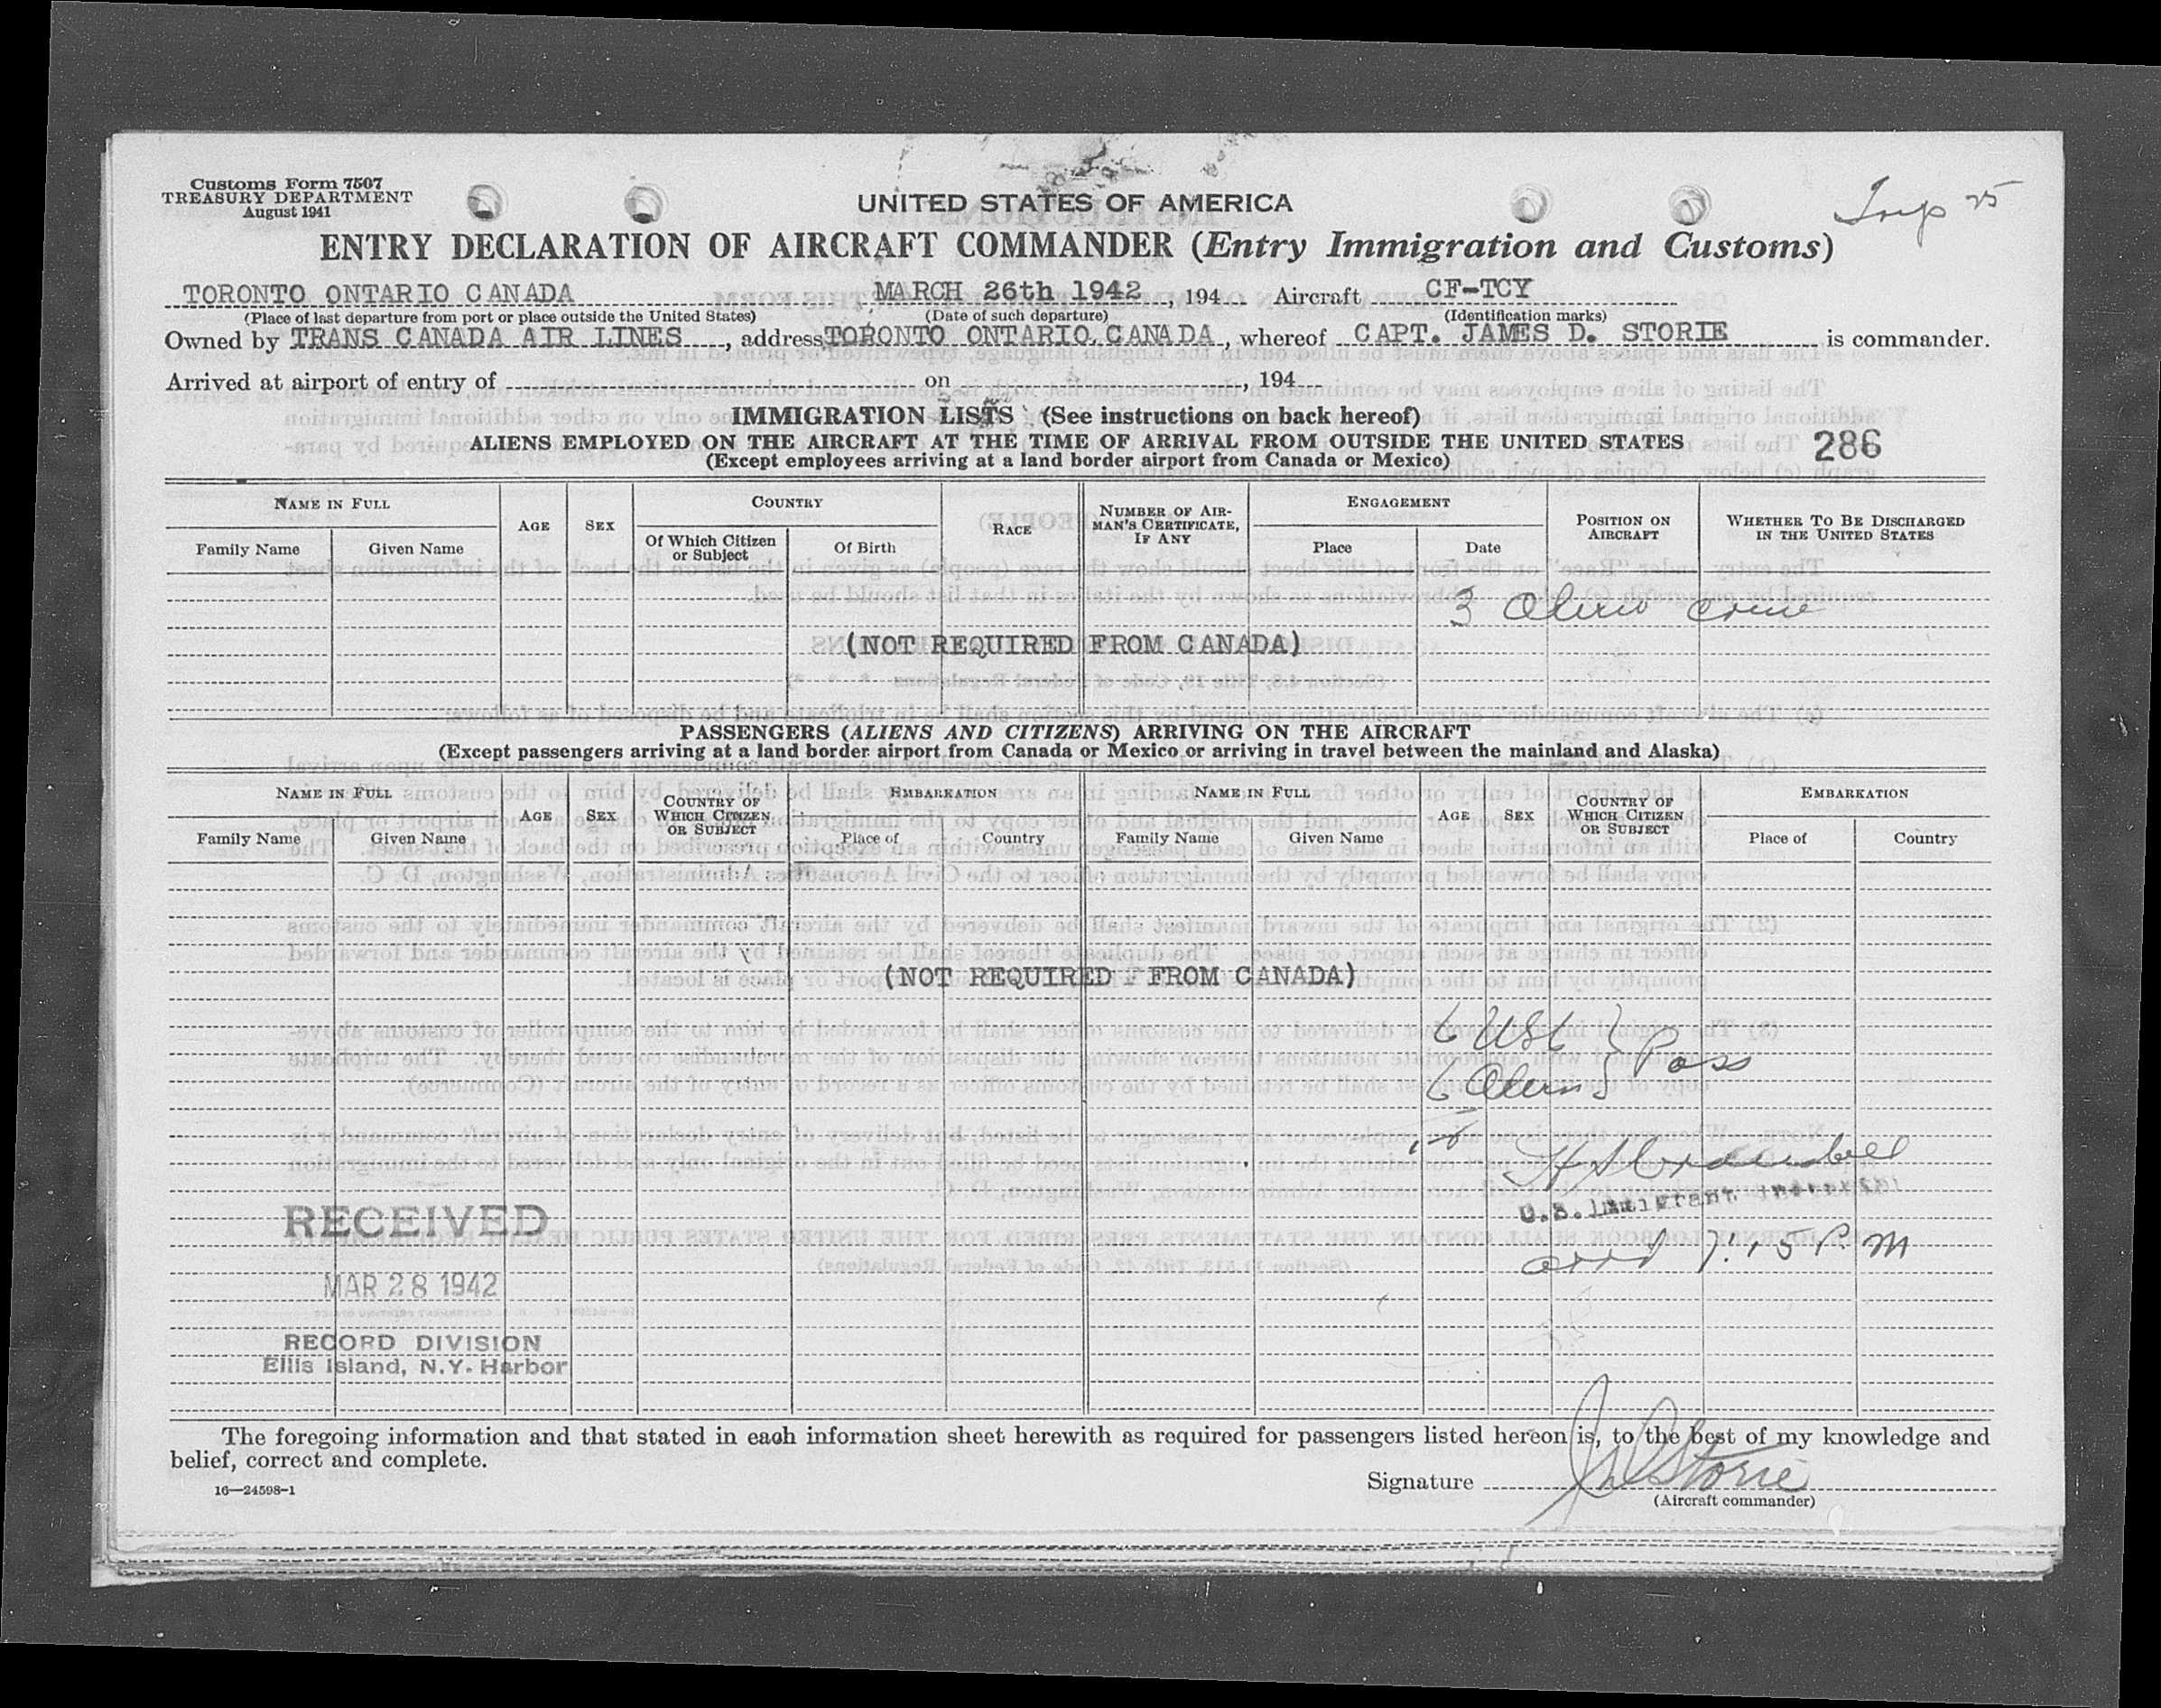 Customs Form 7507
TREASURY DEPARTMENT
August 1941
UNITED STATES OF AMERICA
ENTRY DECLARATION OF AIRCRAFT COMMANDER (Entry Immigration and Customs)
TORONTO ONTARIO CANADA MARCH 26th 1942, 194 Aircraft CF-TCY
(Place of last departure from port or place outside the United States) (Date of such departure) (Identification marks)
Owned by TRANS CANADA AIR LINES, address TORONTO ONTARIO, CANADA, whereof CAPT. JAMES D. STORIE is commander.
Arrived at airport of entry of on , 194
IMMIGRATION LISTS (See instructions on back hereof)
ALIENS EMPLOYED ON THE AIRCRAFT AT THE TIME OF ARRIVAL FROM OUTSIDE THE UNITED STATES 286
(Except employees arriving at a land border airport from Canada or Mexico)
NAME IN FULL AGE SEX COUNTRY RACE NUMBER OF AIRMAN'S CERTIFICATE, IF ANY ENGAGEMENT POSITION ON AIRCRAFT WHETHER TO BE DISCHARGED IN THE UNITED STATES
Family Name Given Name Of Which Citizen or Subject Of Birth Place Date
3 Alien
(NOT REQUIRED FROM CANADA)
PASSENGERS (ALIENS AND CITIZENS) ARRIVING ON THE AIRCRAFT
(Except passengers arriving at a land border airport from Canada or Mexico or arriving in travel between the mainland and Alaska)
NAME IN FULL AGE SEX COUNTRY OF WHICH CITIZEN OR SUBJECT EMBARKATION NAME IN FULL AGE SEX COUNTRY OF WHICH CITIZEN OR SUBJECT EMBARKATION
Family Name Given Name Place of Country Family Name Given Name Place of Country
(NOT REQUIRED FROM CANADA)
6 USC
6 Alien } Pass
U.S. Immigrant Inspector
RECEIVED
arrd 7:15 P.M
MAR 28 1942
RECORD DIVISION
Ellis Island, N.Y. Harbor
The foregoing information and that stated in each information sheet herewith as required for passengers listed hereon is, to the best of my knowledge and
belief, correct and complete.
Signature J D Storie
16—24598-1
(Aircraft commander)